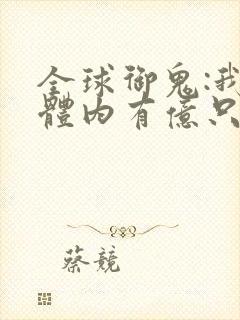 全球御鬼:我
體內有億只
蔡競